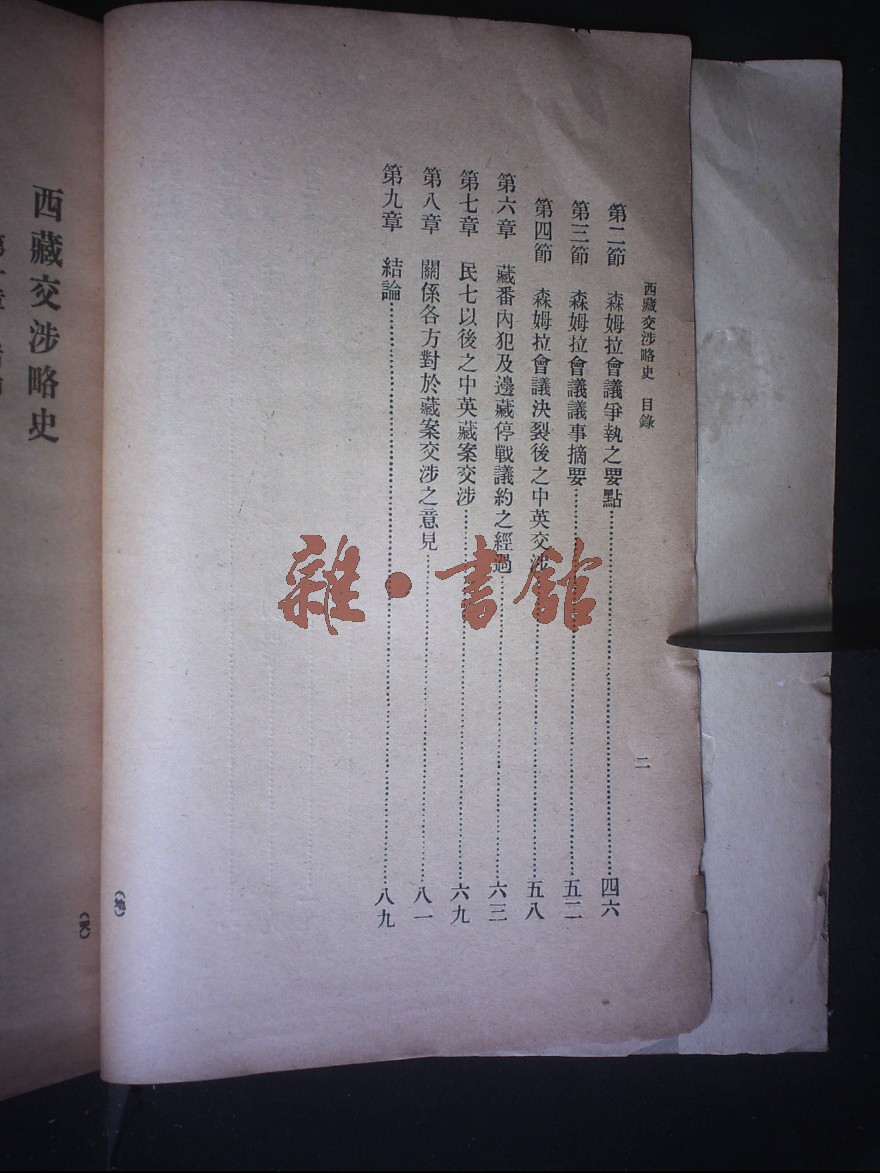 西藏交涉略史　目錄
二
第二節　森姆拉會議爭執之要點……四六
第三節　森姆拉會議議事摘要……五二
第四節　森姆拉會議決裂後之中英交涉……五八
第六章　藏番內犯及邊藏停戰議約之經過……六三
第七章　民七以後之中英藏案交涉……六九
第八章　關係各方對於藏案交涉之意見……八一
第九章　結論……八九
(地)
西藏交涉略史
雜·書館